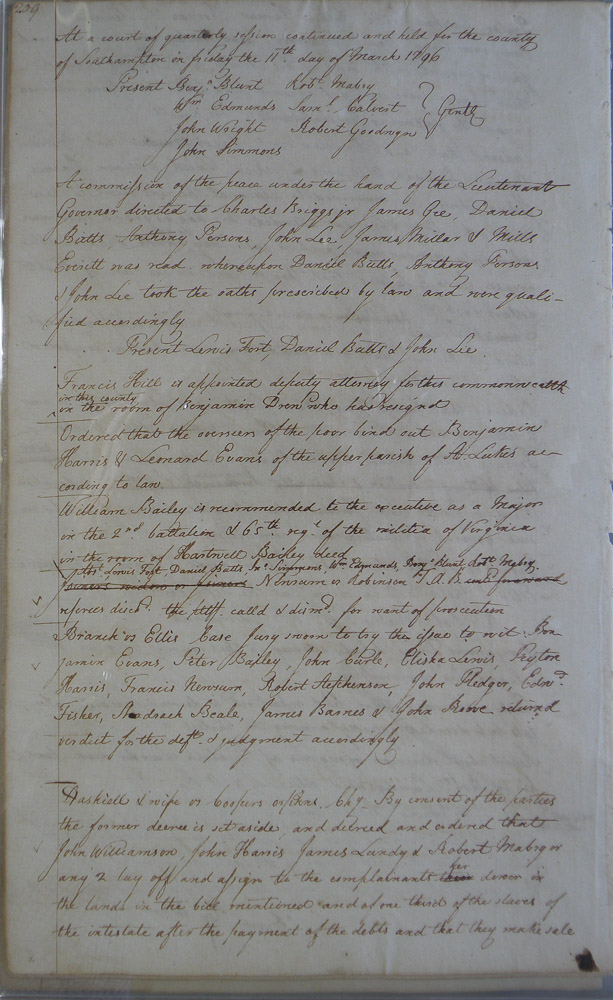 259
At a court of quarterly session continued and held for the county
of Southampton in friday the 11th day of March 1796
Present Benjn Blunt Robt Mabry
Wm Edmunds Saml Calvert } Gentl
John Wright Robert Goodwyn
John Simmons
A commission of the peace under the hand of the Lieutenant
Governor directed to Charles Briggs jr James Gee, Daniel
Butts Anthony Persons, John Lee, James Millar & Mills
Everitt was read. whereupon Daniel Butts, Anthony Persons
& John Lee took the oaths prescribed by law and were quali-
fied accordingly
Present Lewis Fort, Daniel Butts & John Lee.
Francis Hill is appointed deputy attorney for this commonwealth
in this county
in the room of Benjamin Drew who has resignd
Ordered that the overseers of the poor bind out Benjamin
Harris & Leonard Evans of the upper parish of St. Lukes ac-
cording to law
William Bailey is recommended to the executive as a Major
in the 2nd battalion & 65th regt of the militia of Virginia
in the room of Hartwell Bailey decd
Abst. Lewis Fort, Daniel Butts, Jn. Simmons, Wm Edmunds, Benjn Blunt, Robt Mabry.
widow vs Newsum vs Robinson A. B.
referees dischd. the pltff. calld & dismd. for want of prosecution
Branch vs Ellis Case Jury sworn to try the issue to wit. Ben
jamin Evans, Peter Bailey, John Curle, Elisha Lewis, Peyton
Harris, Francis Newsum, Robert Stephenson, John Pledger, Edwd.
Fisher, Shadrach Beale, James Barnes & John Rowe returnd
verdict for the deft. & judgment accordingly
Haskiell & wife vs Coopers orphns. Chy. By consent of the parties
the former decree is set aside, and decreed and ordered that
John Williamson, John Harris James Lundy & Robert Mabry or
any 2 lay off and assign to the complainants
her
dower in
the lands in the bill mentioned and of one third of the slaves of
the intestate after the payment of the debts and that they make sale